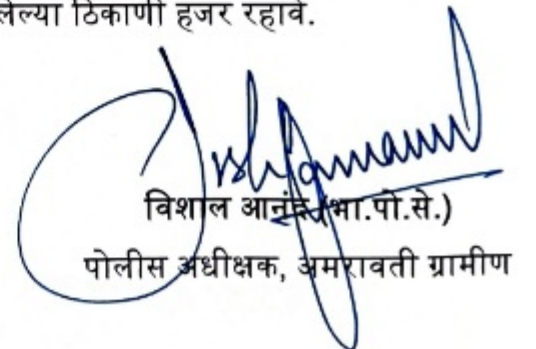 लेल्या ठिकाणी हजर रहावे.
विशाल आनंद (भा.पो.से.)
पोलीस अधीक्षक, अमरावती ग्रामीण